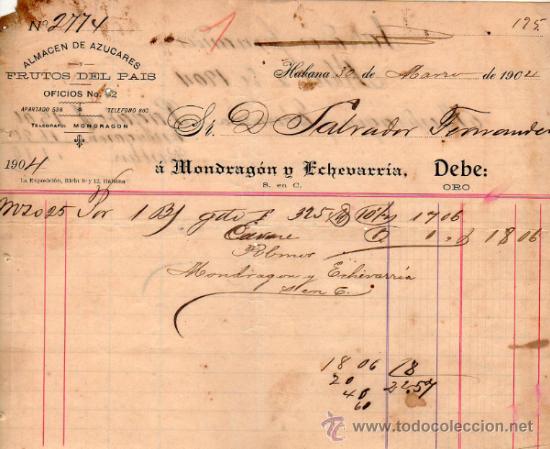 No 2774
195.
ALMACEN DE AZUCARES
Y
FRUTOS DEL PAIS
OFICIOS No. 92
APARTADO 528 TELEFONO 860
TELEGRAFO: MONDRAGON
Habana 30 de Marzo de 1904
Sr. D Salvador Fernandez
1904
á Mondragón y Echevarría, Debe:
S. en C.
ORO
La Exposición, Ricla 9 y 12, Habana
Mzo 25 Por 1 Bj 325 17 06
$ 18 06
Mondragon y Echevarría
S en C.
18 06 18
20 22.57
40
60
todocoleccion.net